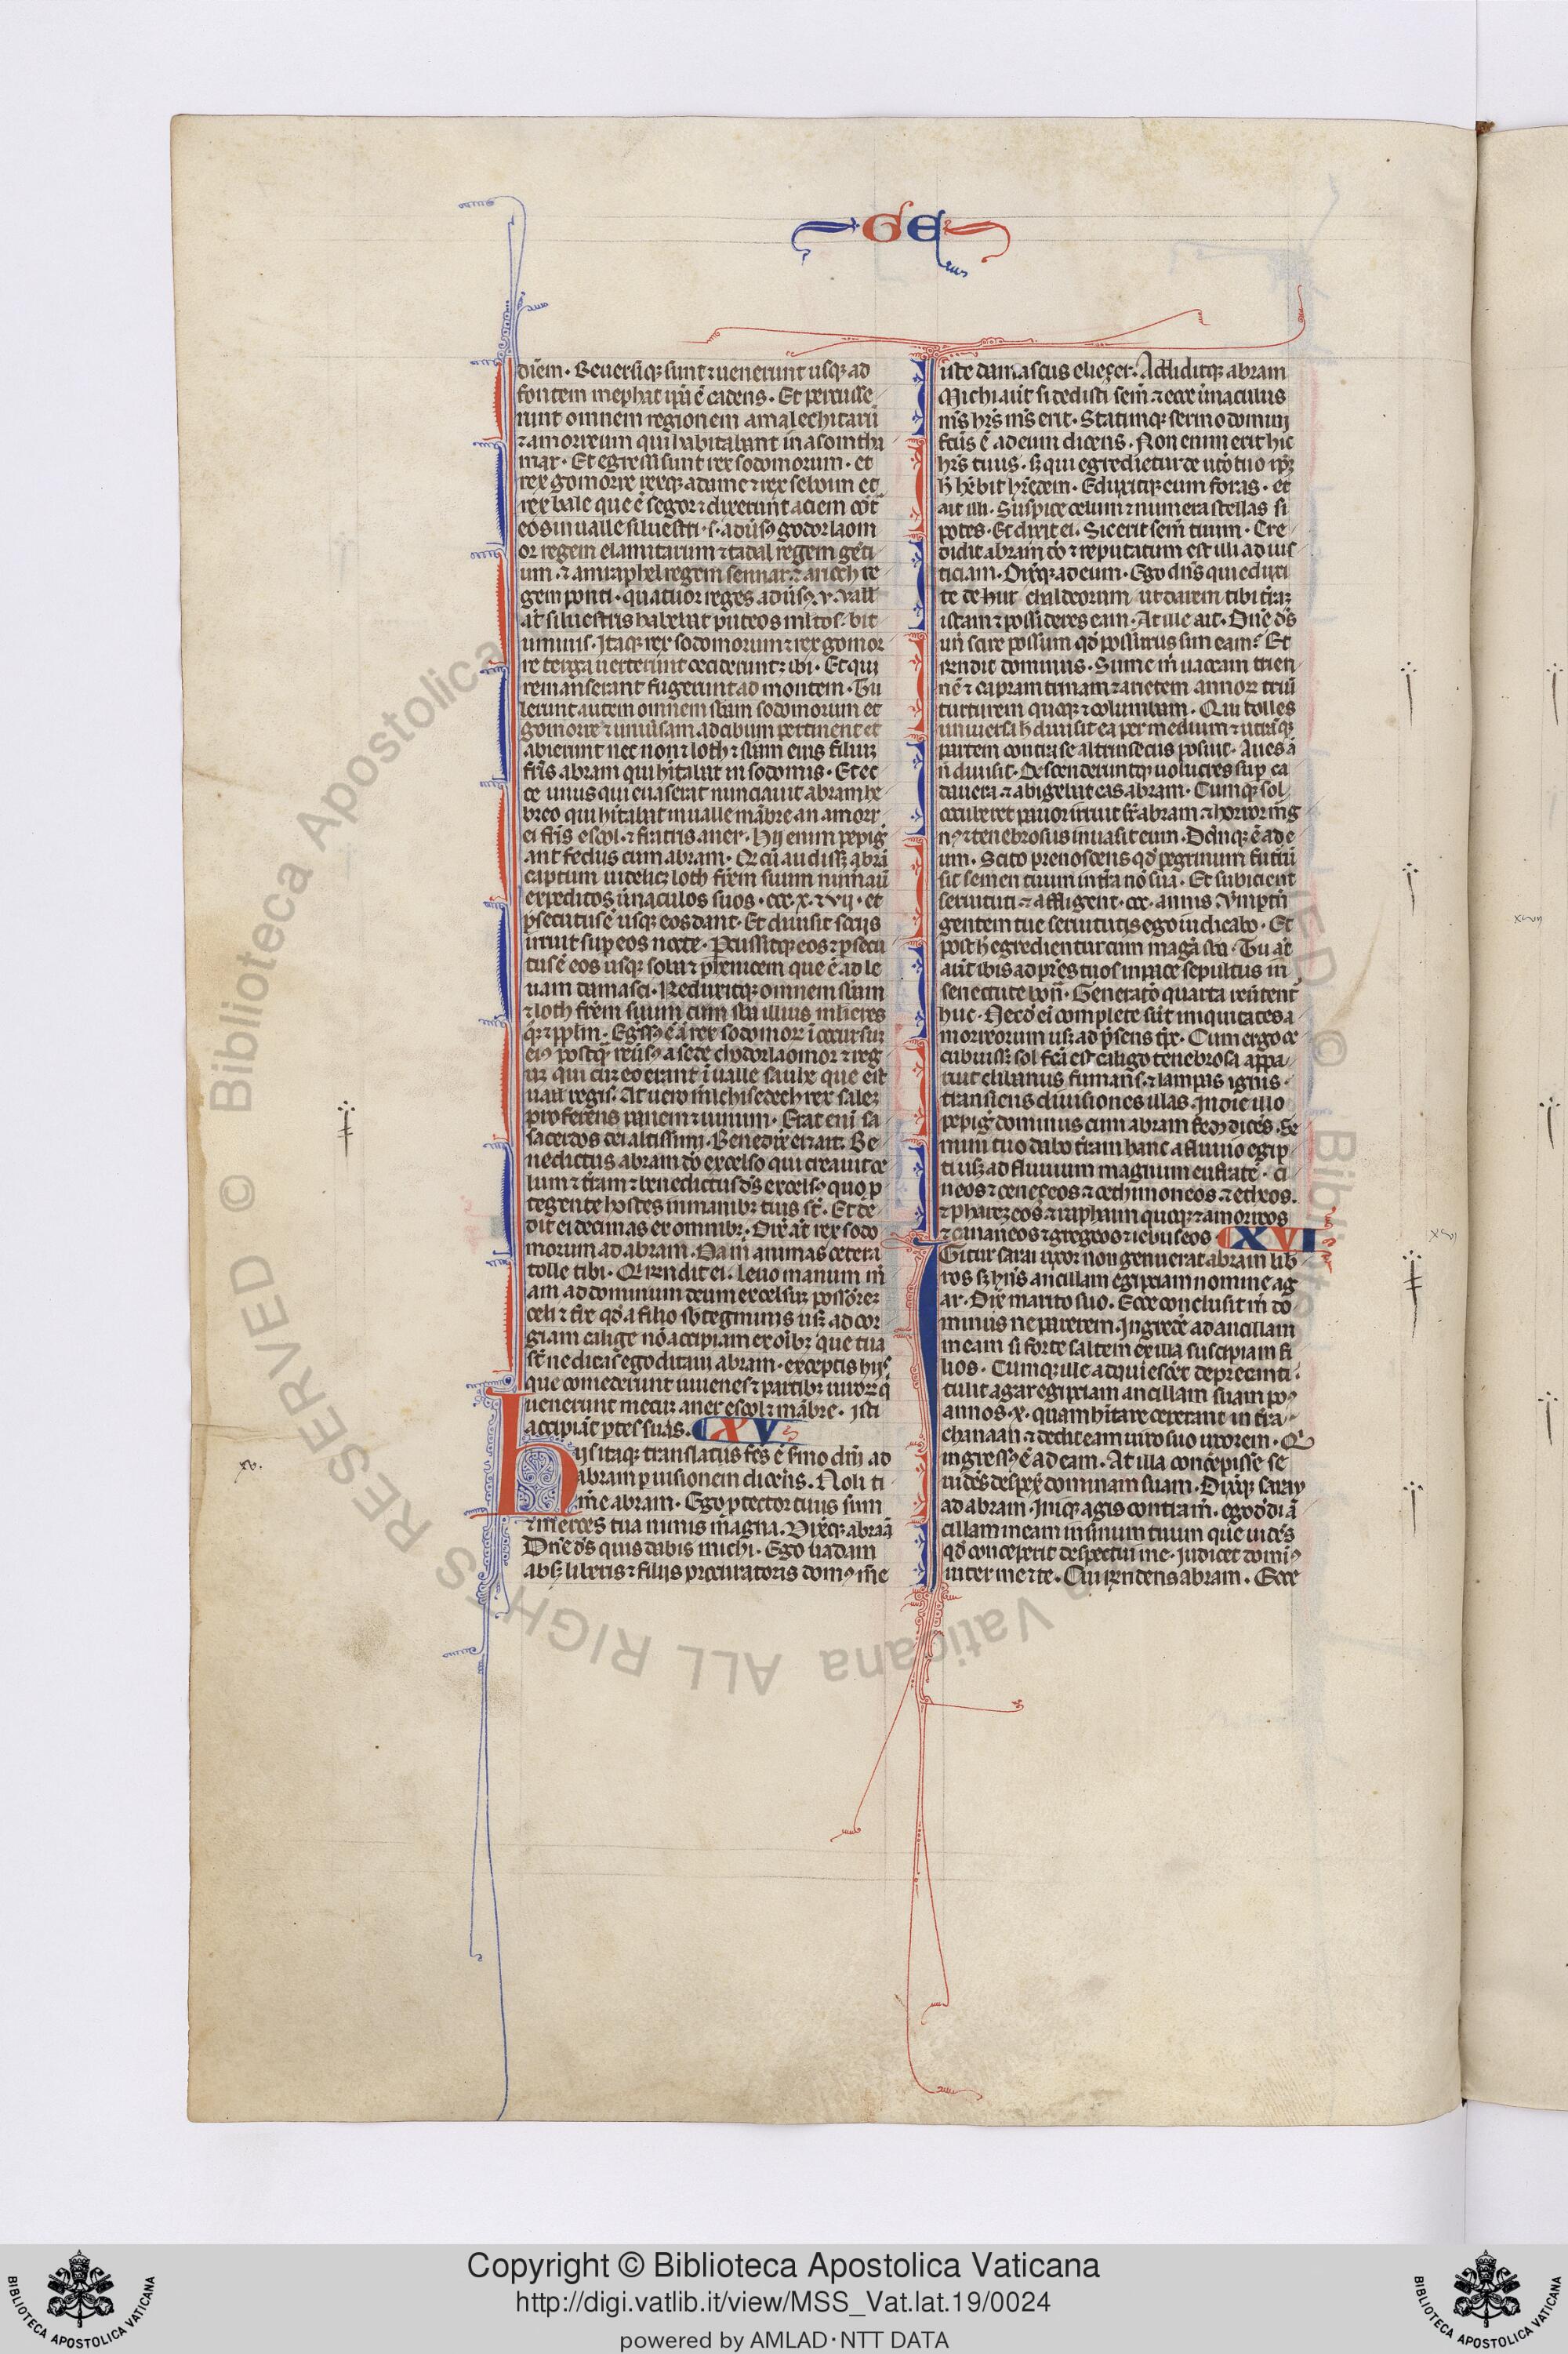 GE
diem · Reuersiq; sunt ⁊ uenerunt usq; ad
fontem mephat ip̄a ē cadens · Et percusse
runt omnem regionem amalechitarū
⁊ amorreum qui habitabant in asontha
mar · Et egressi sunt rex sodomorum · et
rex gomorre rexq; adame ⁊ rex seboim et
rex bale que ē segor ⁊ direxerunt aciem cōt̄
eos in ualle siluestri · s · adūsꝰ godorlaom
or regem elamitarum ⁊ tadal regem gēti
um · ⁊ amraphel regem sennar · ⁊ arioch re
gem ponti · quatuor reges adūsꝰ · v · Vall
aūt siluestris habebat puteos ml̄tos · bit
uminis · Itaq; rex sodomorum ⁊ rex gomor
re terga uerterunt ceciderunt; ibi · Et qui
remanserant fugerunt ad montem · Tu
lerunt autem omnem sb̄am sodomorum et
gomorre ⁊ uniūsam ad cibum pertinent et
abierunt nec non ⁊ loth ⁊ sb̄am eius filiuꝫ
fr̄is abram qui hītabat in sodomis · Et ec
ce unus qui euaserat nunciauit abram he
breo qui hītabat in ualle mābre an amorr
ei fr̄is escol · ⁊ fratris aner · Hij enim pepig
ant fedus cum abram · Qd̄ cū audissꝫ abrā
captum uidelicꝫ loth fr̄em suum numaū
expeditos ūnaculos suos · ccc · x · ⁊ vij · et
ꝑsecutus ē usq; eos dant · Et diuisis socijs
irruit suꝑ eos nocte · Pcussitq; eos ⁊ ꝑsecu
tus ē eos usq; soba ⁊ phenicem que ē ad le
uam damasci · Reduxitq; omnem sb̄am
⁊ loth fr̄em suum cum sb̄a illius mlieres
q̄; ⁊ ppl̄m · Egssꝰ ē ā rex sodomoꝝ ī occursuꝫ
eiꝰ postq̄ reūsꝰ a sede chodorlaomor ⁊ reg
uꝫ qui cuꝫ eo erant ī ualle saube que est
uall regis · At uero mlchisedech rex saleꝫ
proferens panem ⁊ uinum · Erat eni sa
sacerdos dei altissimi · Benedix̄ ei ⁊ ait · Be
nedictus abram dō excelso qui creauit ce
lum ⁊ t̄ram ⁊ benedictus dꝰs excelsꝰ quo ꝓ
tegente hostes in manibꝫ tuis st̄ · Et de
dit ei decimas ex omnibꝫ · Dix̄ aūt rex sodo
morum ad abram · Da m̄ animas cetera
tolle tibi · Qi r̄ndit ei · leuo manum m̄
am ad dominum deum excelsuꝫ possorē
celi ⁊ tr̄e qd̄ a filo sb̄tegminis usꝫ ad cor
giam calige nō accipiam ex oībꝫ que tua
st̄ ne dicas ego ditaui abram · exceptis hijs
que comederunt iuuenes ⁊ partibꝫ uiroꝝ q̄
uenerunt mecuꝫ aner escol ⁊ mābre · isti
accipiāt ꝑtes suas · XV
Hijs itaq; translatis fcs̄ ē sꝰmo dn̄i ad
abram ꝑ uisionem dicens · Noli ti
me abram · Ego ꝓtector tuus sum
⁊ merces tua nimis magna · Dixitq; abrā
Dn̄e dꝰs quis dabis michi · Ego uadam
absꝫ liberis ⁊ filius procuratoris domꝰ m̄e
xv.
iste damascus eliezer · Addiditq; abram
Michi aūt si dedisti sem̄ ⁊ ecce ūnaculus
m̄s hr̄s m̄s erit · Statimq; sermo domini
fctūs ē ad eum dicens · Non enim erit hic
hr̄s tuus · sꝫ qui egredietur de uto tuo ip̄ꝫ
h̄ hēbit hr̄edem · Eduxitq; eum foras · et
ait illi · Suspice celum ⁊ numera stellas si
potes · Et dixit ei · Sic erit sem̄ tuum · Cre
didit abram dō ⁊ reputatum est illi ad ius
ticiam · Dixitq; ad eum · Ego dn̄s qui eduxi
te de hur chaldeorum ut darem tibi t̄raꝫ
istam ⁊ possideres eam · At ille ait · Dn̄e dꝰs
un̄ scire possum qd̄ possessurus sim eam · Et
r̄ndit dominus · Sume m̄ uaccam trien
nē ⁊ capram trimam ⁊ arietem annoꝝ triū
turturem quoq; ⁊ columbam · Qui tolles
uniuersa h̄ diuisit ea per medium ⁊ utrasq;
partem contra se altrinsecus posuit · Aues ā
n̄ diuisit · Descenderuntq; uolucres suꝑ ca
dauera ⁊ abigebat eas abram · Cumq; sol
occuberet pauor irruit sr̄ abram ⁊ horror mg
nꝰ ⁊ tenebrosus inuasit eum · Dc̄mq; ē ad e
um · Scito prenoscens qd̄ pegrinum futuū
sit semen tuum in tr̄a nō sua · Et subicient
seruituti ⁊ affligent · ccc · annis Vmptn̄
gentem cue seruituri st̄ ego iudicabo · Et
post h̄ egredientur cum magā sb̄a · Tu aūt
aūt ibis ad pr̄es tuos in pace sepultus in
senectute bon̄ · Generatō quarta reūtent
huc · Necdū ei complete sūt iniquitates a
morreorum usꝫ ad pſens tp̄s · Cum ergo oc
cubuissꝫ sol fc̄a est caligo tenebrosa appa
ruit clibanus fumans · ⁊ lampas ignis ·
transiens diuisiones illas · In die illo
pepigꝰ dominus cum abram fedꝰ dices · Se
mini tuo dabo t̄ram hanc a fluuio egip
ti usꝫ ad fluuium magnum eufrate · ci
neos ⁊ cenezeos ⁊ cethimoneos · ⁊ etheos ·
⁊ pherezeos · ⁊ raphaim quoq; ⁊ amorreos
⁊ cananeos ⁊ gregeos ⁊ iebuseos XVI
Igitur sarai uxor non genuerat abram lib̄
ros sꝫ hn̄s ancillam egipciam nomine ag
ar · Dix̄ marito suo · Ecce conclusit m̄ do
minus ne parerem · Ingredē ad ancillam
meam si forte saltem ex illa suscipiam fi
lios · Cumq; ille adquiescēt deprecanti ·
tulit agar egipciam ancillam suam poꝰ
annos · x · quam hītare ceperant in tr̄a
chanaan ⁊ dedit eam uiro suo uxorem · Q
ingressꝰ ē ad eam · At illa concepisse se
uidēs despex̄ dominam suam · Dixitq; saray
ad abram · Iniq; agis contra m̄ · ego dedi ā
cillam meam in sinum tuum que uidēs
qd̄ conceperit despectui me · iudicet dominꝰ
inter me ⁊ te · Cui r̄ndens abram · Ecce
Copyright © Biblioteca Apostolica Vaticana
http://digi.vatlib.it/view/MSS_Vat.lat.19/0024
powered by AMLAD·NTT DATA
BIBLIOTECA APOSTOLICA VATICANA
BIBLIOTECA APOSTOLICA VATICANA